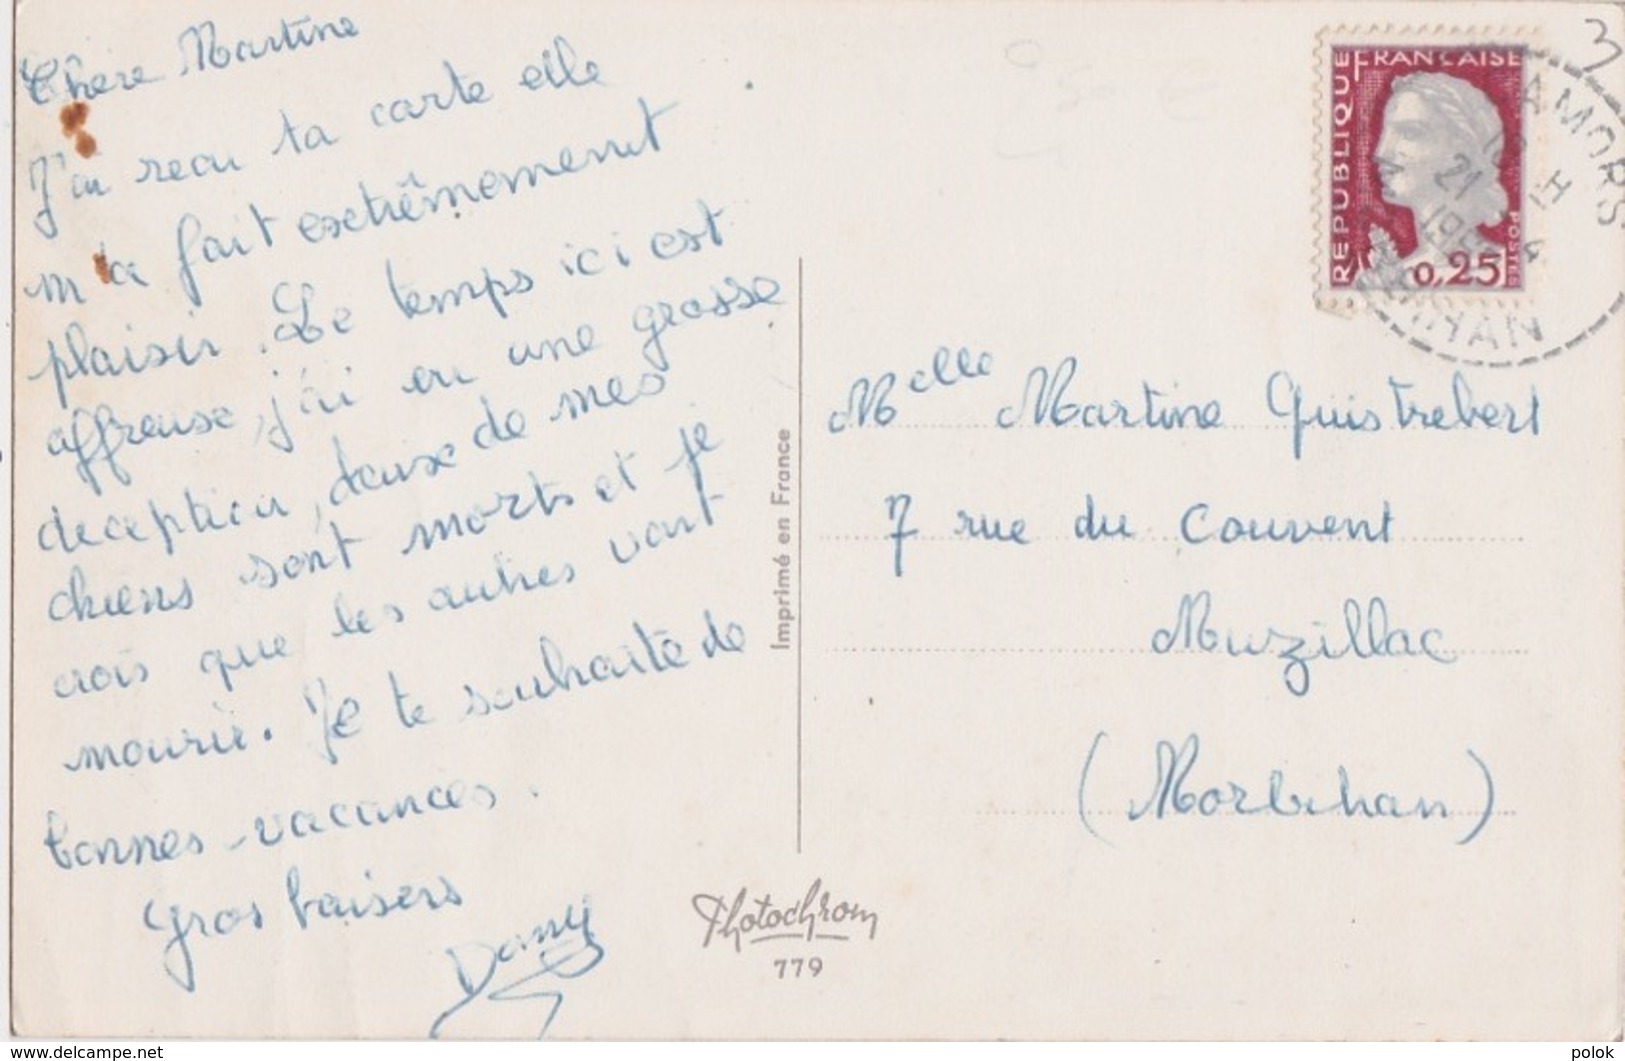 Chère Martine
J'ai recu ta carte elle
m'a fait extrêmement
plaisir. Le temps ici est
affreuse, j'ai eu une grosse
deception, deuxe de mes
chiens sont morts et je
crois que les autres vont
mourir. Je te souhaite de
bonnes-vacances.
Gros baisers
Dany
Imprimé en France
Photochrom
779
REPUBLIQUE FRANÇAISE
0,25
POSTES
CAMORS
21
196
MORBIHAN
Melle Martine Guistrebert
7 rue du Couvent
Muzillac
(Morbihan)
www.delcampe.net
polok